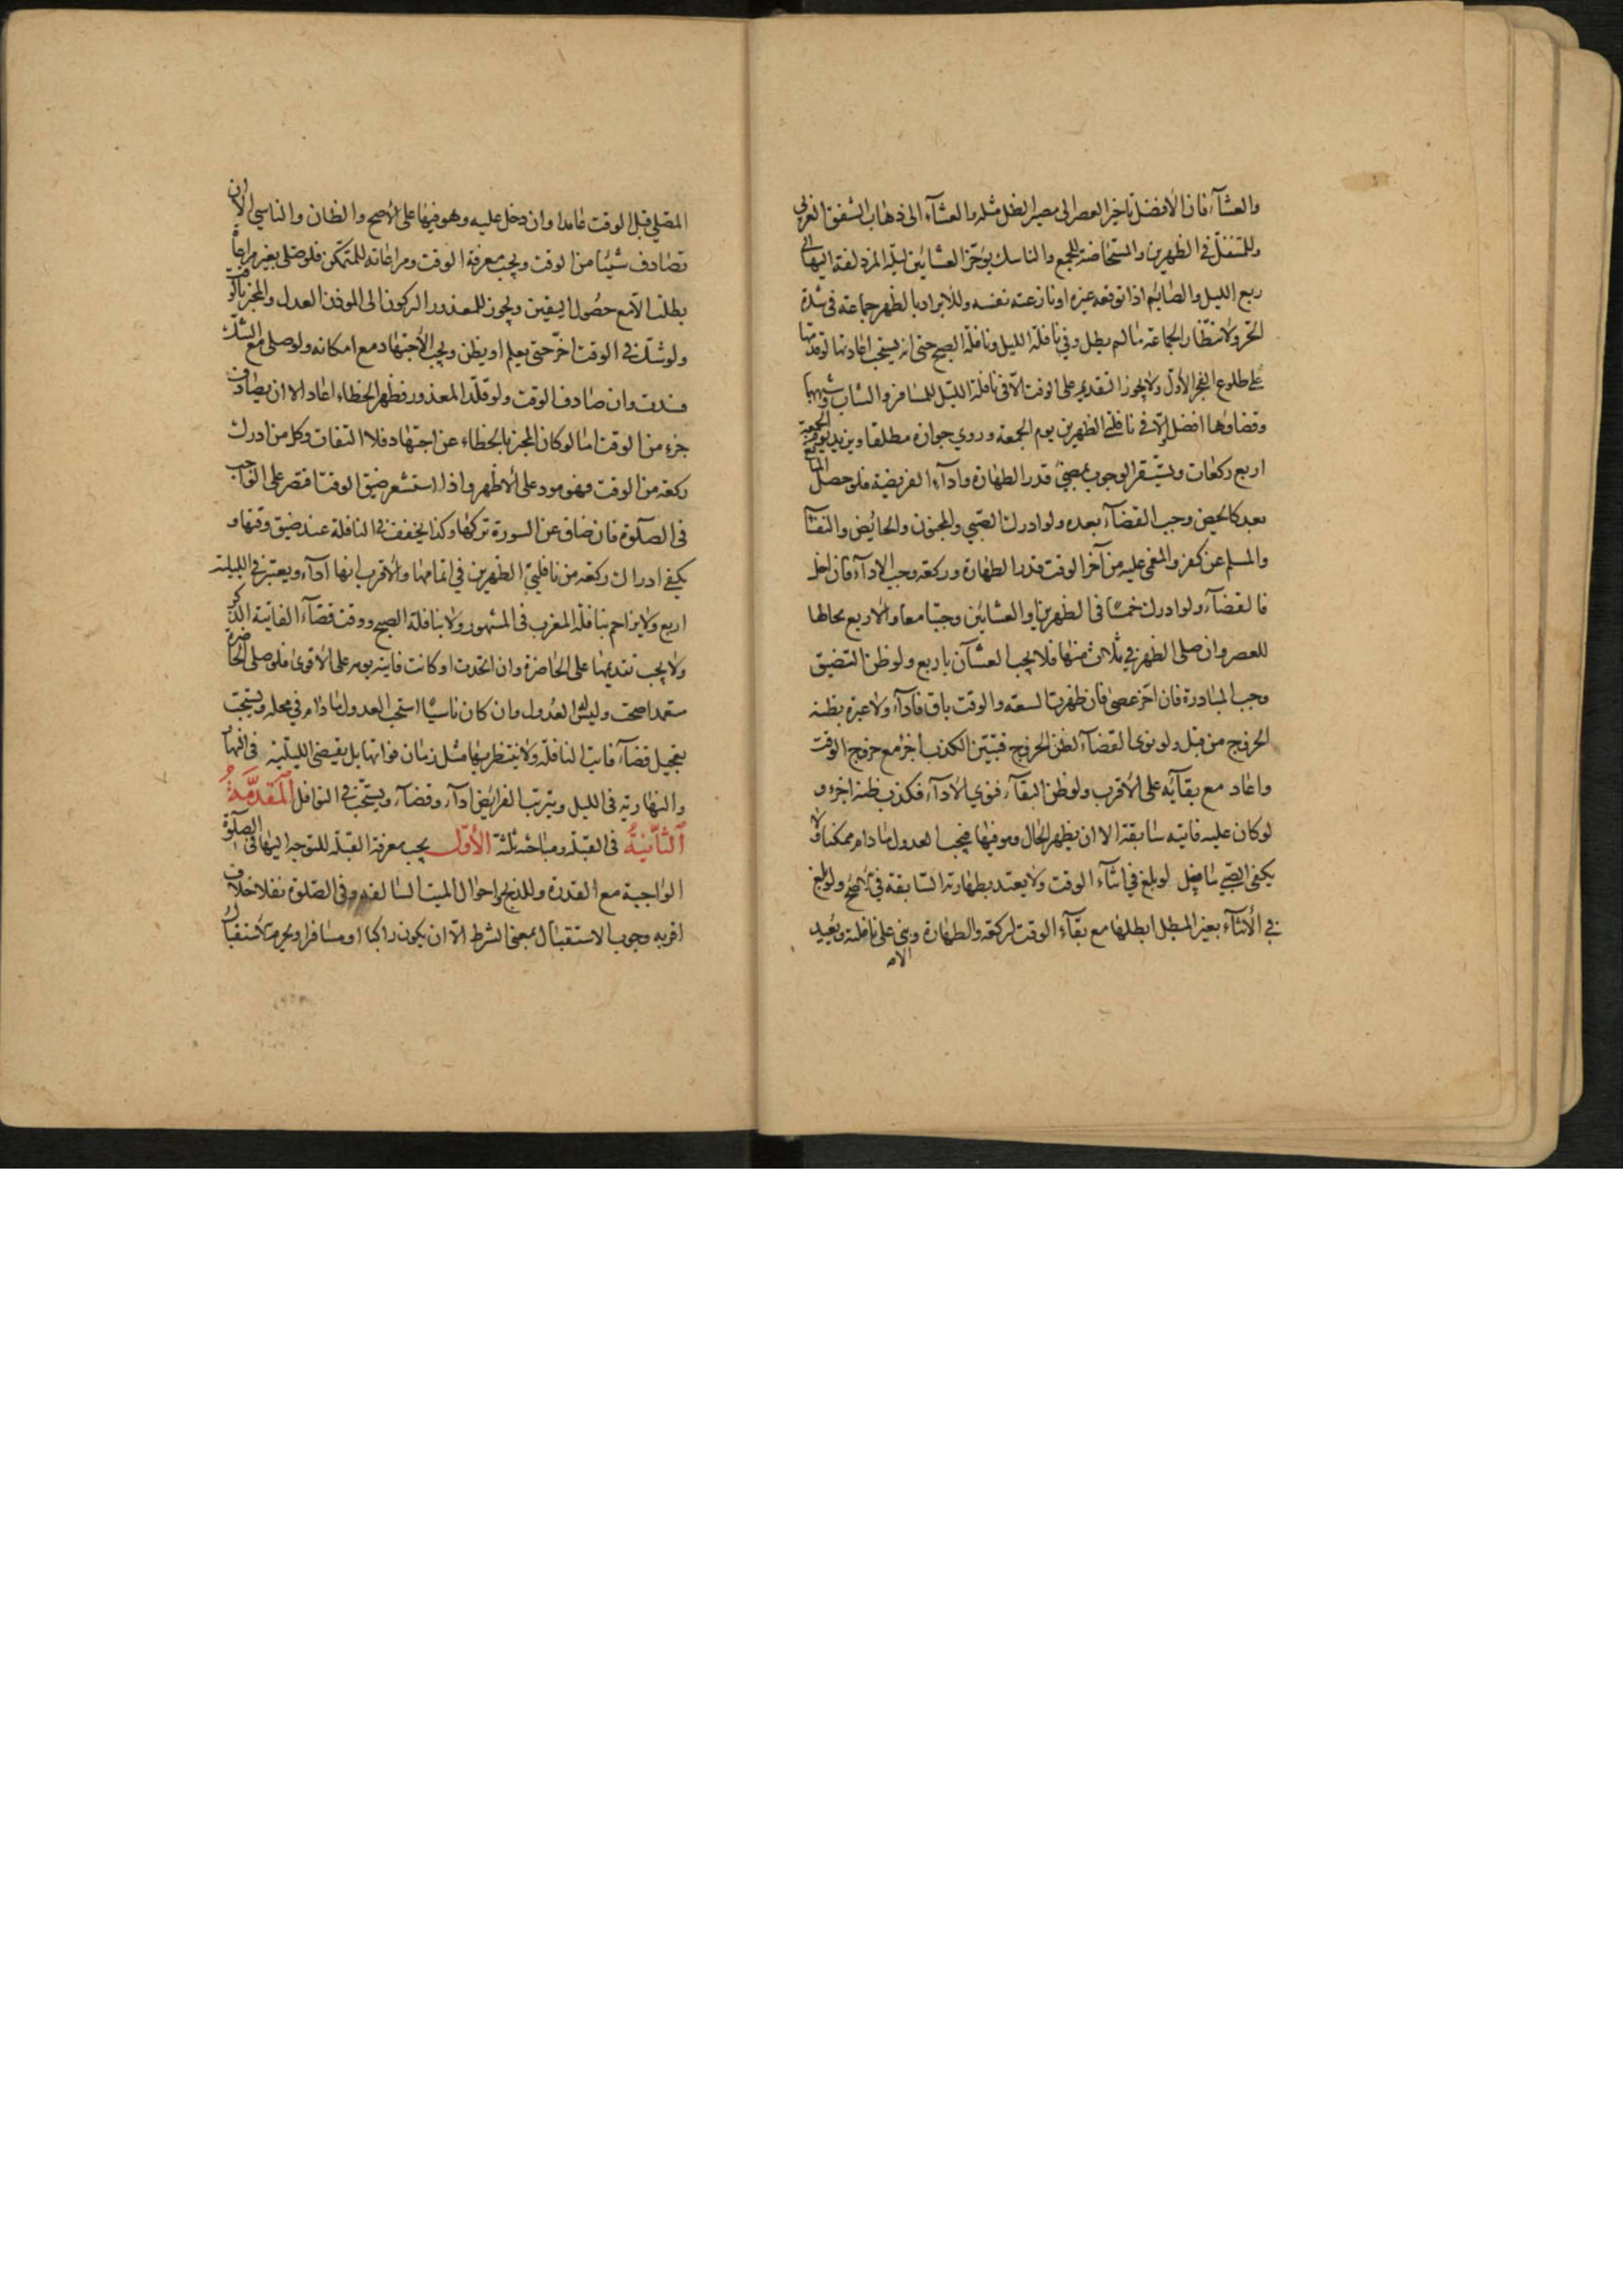 والعشآء فان الأفضل تاخير العصر الى مصير الظل مثله والعشآء الى ذهاب الشفق الغربي
وللمتنفل في الظهرين والمستحاضة للجمع والناسك يؤخر العشائين ليلة المزدلفة اليها الى
ربع الليل والصايم اذا توقعه غيره او نازعته نفسه وللابراد بالظهر جماعة في شدة
الحر ولانتظار الجماعة ما لم يطل وفي نافلة الليل ونافلة الصبح حتى انه يستحب اعادتها لو قدمها
على طلوع الفجر الأول ولا يجوز التقديم على الوقت الا في نافلة الليل للمسافر والشاب وشبههما
وقضاؤها افضل والا في نافلتي الظهرين يوم الجمعة وروي جوازه مطلقا ويزيد يوم الجمعة
اربع ركعات ويستقر الوجوب بمضي قدر الطهارة وادآء الفريضة فلو حصل المانع
بعد كالحيض وجب القضآء بعده ولو ادرك الصبي والمجنون والحائض والنفسآ
والمسلم عن كفر والمغمى عليه من آخر الوقت قدر الطهارة وركعة وجب الادآء فان اخل
فالقضآء ولو ادرك خمسا في الظهرين او العشائين وجبتا معا والاربع بحالها
للعصر وان صلى الظهر في ثلاث منها فلا يجب العشآن باربع ولو ظن التضيق
وجب المبادرة فان اخر عصى فان ظهرت السعة والوقت باق فادآء ولا عبرة بظنه
الخروج من قبل ولو نوى القضآء لظن الخروج فتبين الكذب اجزء مع خروج الوقت
واعاد مع بقآئه على الأقرب ولو ظن البقآء فنوي الأدآء فكذب ظنه اجزء و
لو كان عليه فايتة سابقة الا ان يظهر الحال وهو فيها فيجب العدول ما دام ممكنا ولا
يكفي الصبي ما فعل لو بلغ في اثناء الوقت ولا يعتد بطهارته السابقة في الأصح ولو بلغ
في الأثنآء بغير المبطل ابطلها مع بقآء الوقت لركعة والطهارة وبنى على نافلته ويعيد
المصلي قبل الوقت عامدا وان دخل عليه وهو فيها على الأصح والظان والناسي الا ان
تصادف شيئا من الوقت ويجب معرفة الوقت ومراعاته للمتمكن فلو صلى بغير مراعاة
بطلت الا مع حصول اليقين ويجوز للمعذور الركون الى الموذن العدل والمخبر بالوقت
ولو شك في الوقت اخر حتى يعلم او يظن ويجب الأجتهاد مع امكانه ولو صلى مع الشك
فسدت وان صادف الوقت ولو قلد المعذور فظهر الخطاء اعاد الا ان يصادف
جزء من الوقت اما لو كان المخبر بالخطاء عن اجتهاد فلا التفات وكل من ادرك
ركعة من الوقت فهو مود على الأظهر واذا استشعر ضيق الوقت اقتصر على الواجب
في الصلوة فان ضاق عن السورة تركها وكذا يخفف في النافلة عند ضيق وقتها و
يكفي ادراك ركعة من نافلتي الظهرين في اتمامها والأقرب انها ادآء ويعتبر في الليلية
اربع ولا يزاحم بنافلة المغرب في المشهور ولا بنافلة الصبح ووقت قضآء الفايتة الذكر
ولا يجب تقديمها على الحاضرة وان اتحدت او كانت فايتة يومه على الأقوى فلو صلى الحاضرة
متعمدا صحت وليس له العدول وان كان ناسيا استحب العدول ما دام في محله ويستحب
تعجيل قضآء فايت النافلة ولا ينتظر بها مثل زمان فواتها بل يقضي الليلية في النهار
والنهارية في الليل ويترتب الفرايض ادآء وقضآء ويستحب في النوافل المقدمة
الثانية في القبلة ومباحثه ثلثة الأول يجب معرفة القبلة للتوجه اليها في الصلوة
الواجبة مع القدرة وللذبح واحوال الميت السالفه وفي الصلوة نفلا خلاف
اقربه وجوب الاستقبال بمعنى الشرط الا ان يكون راكبا او مسافرا ويحرم الأستقبال